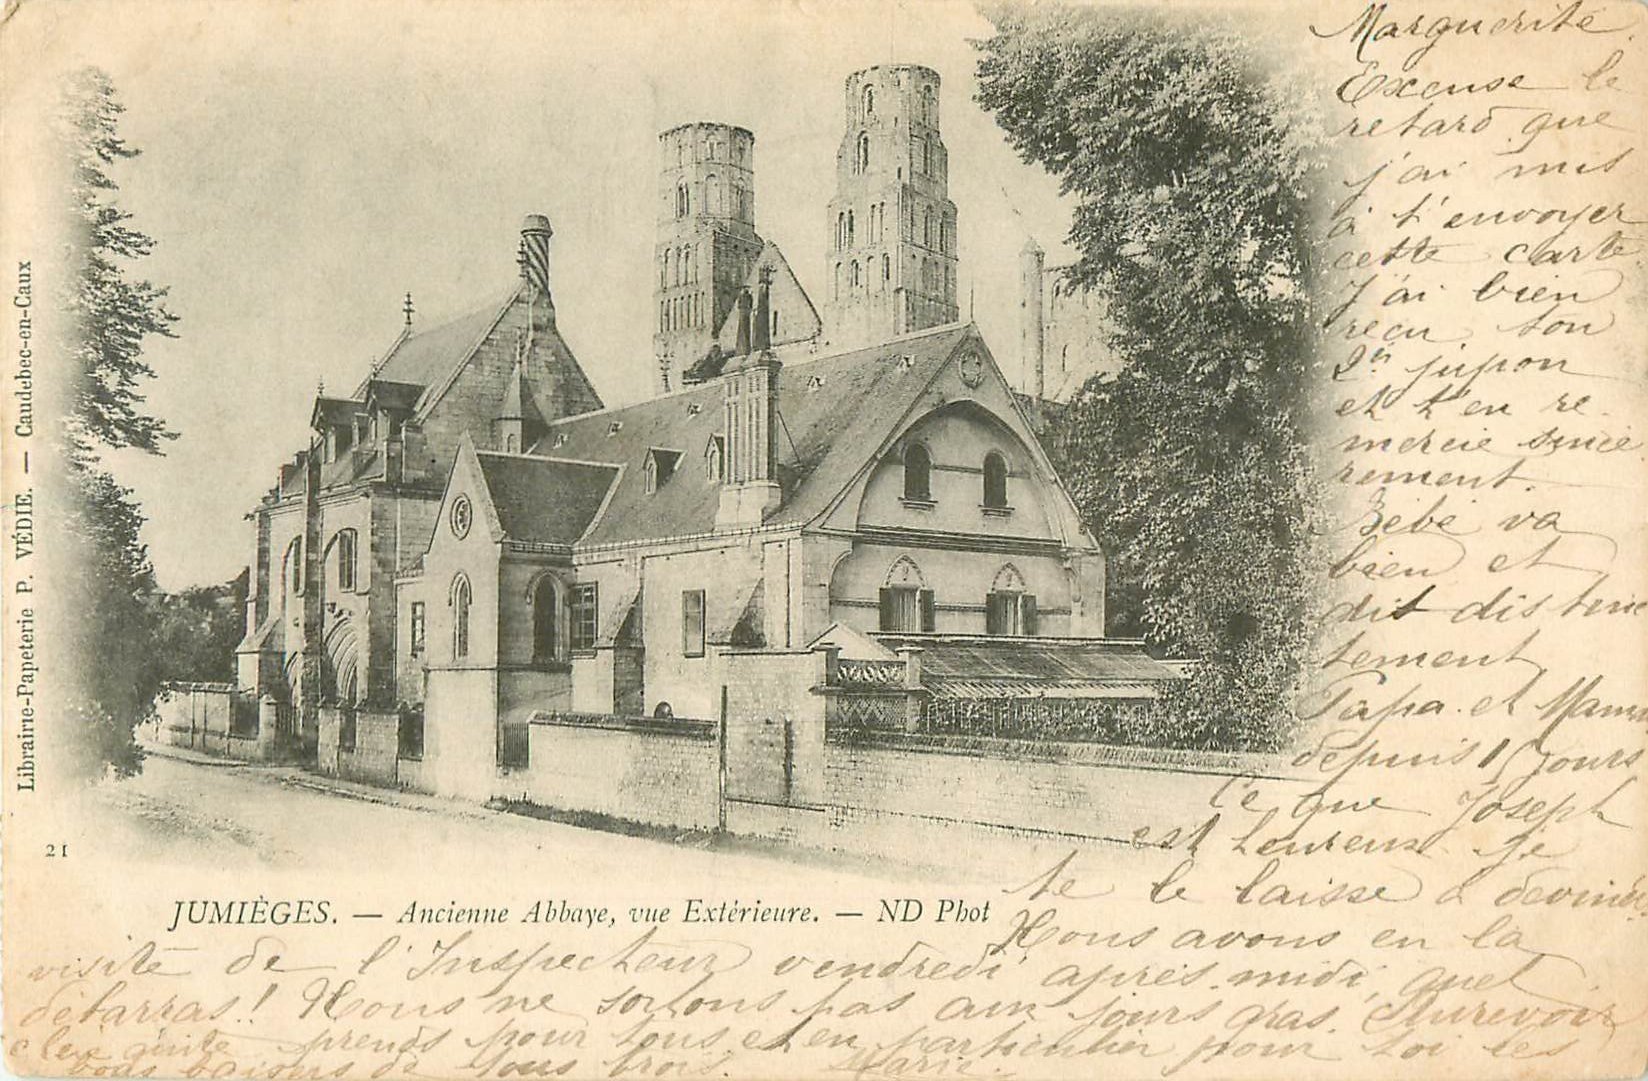 Marguerite.
Excuse le
retard que
j'ai mis
à t'envoyer
cette carte.
J'ai bien
reçu ton
jupon
et t'en re-
mercie sincè
rement.
Bébé va
bien et
dit distinc
tement
Papa et Mama
depuis 15 jours
Ce que Joseph
est heureux je
te le laisse à deviner
Nous avons eu la
visite de l'Inspecteur vendredi après-midi, quel
débarras! Nous ne sortons pas aux jours gras. Aurevoir
prends pour tous et en particulier pour toi les
bons baisers de tous trois. Marie.
JUMIÈGES. — Ancienne Abbaye, vue Extérieure. — ND Phot
21
Librairie-Papeterie P. VÉDIE. — Caudebec-en-Caux